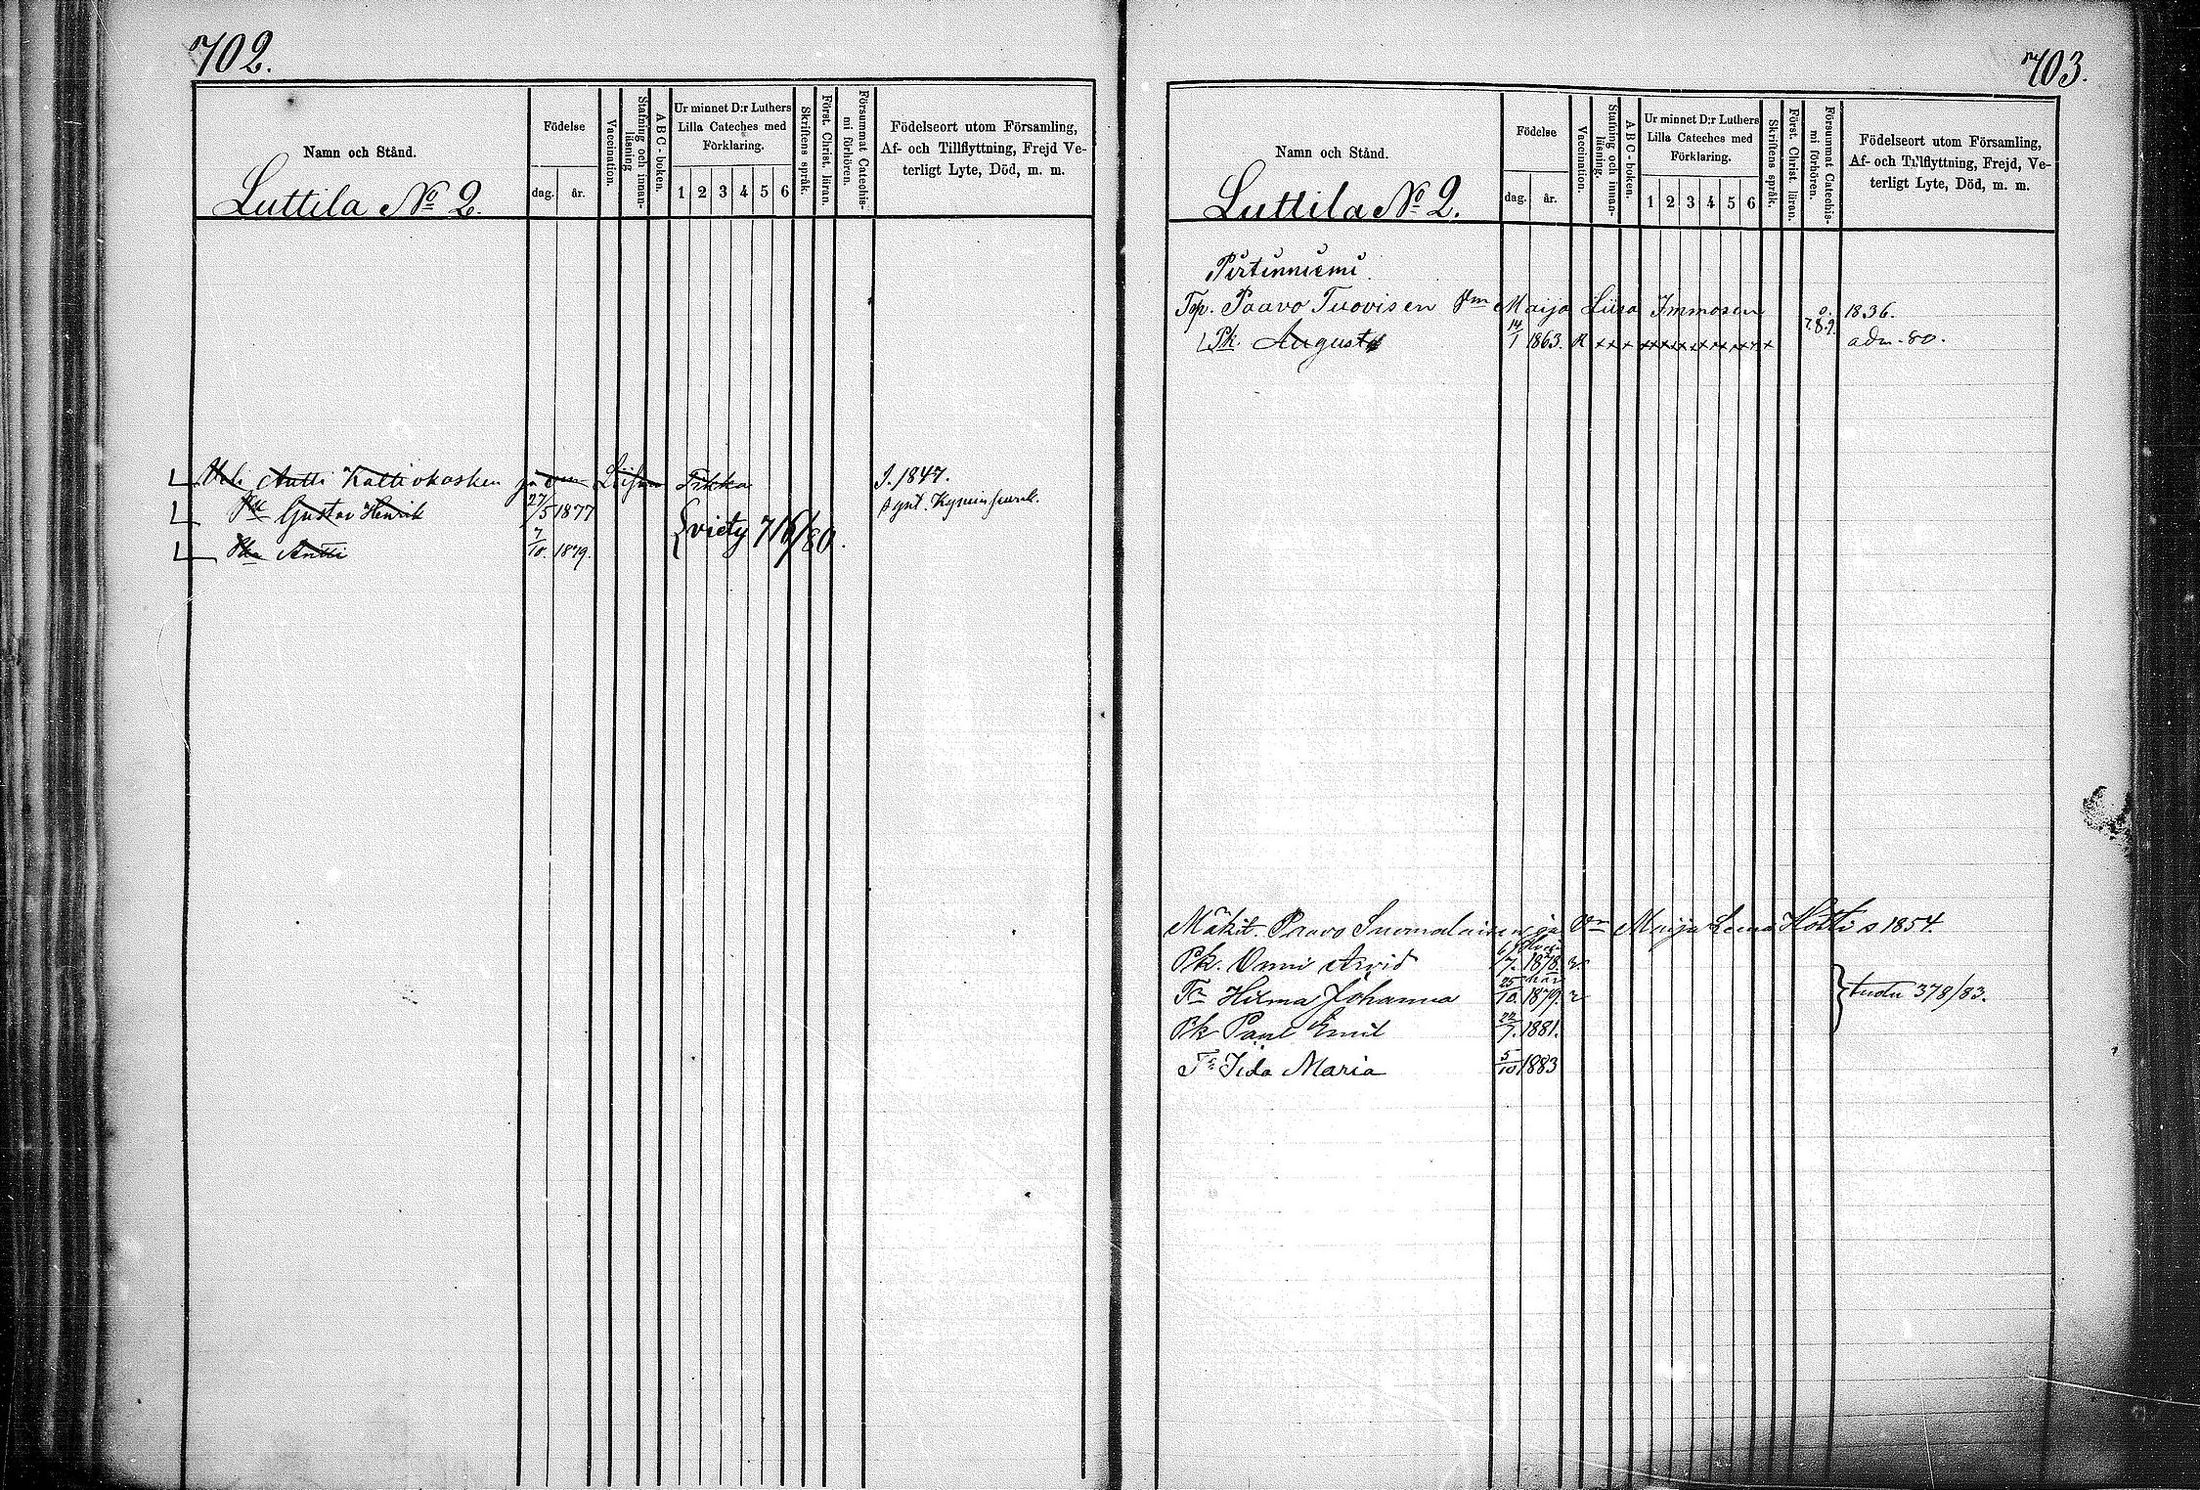 702.
Namn och Stånd.
Födelse
dag.
år.
Vaccination.
Stafning och innan-
läsning
ABC-boken.
Ur minnet D:r Luthers
Lilla Cateches med
Förklaring.
1 2 3 4 5 6
Skriftens språk.
Först. Christ. läran.
Försummat Catechis-
mi förhören.
Födelseort utom Församling,
Af- och Tillflyttning, Frejd Ve-
terligt Lyte, Död, m. m.
Luttila No 2.
Antti Kaltiokosken ja Liisan Tikka S. 1847.
Gustav Henrik 27/5 1877
viety 716/80.
Antti 7/10. 1879.
703.
Namn och Stånd.
Födelse
dag.
år.
Vaccination.
Stafning och innan-
läsning.
ABC-boken.
Ur minnet D:r Luthers
Lilla Cateches med
Förklaring.
1 2 3 4 5 6
Skriftens språk.
Först. Christ. läran.
Försummat Catechis-
mi förhören.
Födelseort utom Församling,
Af- och Tillflyttning, Frejd, Ve-
terligt Lyte, Död, m. m.
Luttila No 2.
Pirtinniemi.
Top. Paavo Tuovisen Vm Maija Liisa Immosen 1836.
Pk. August 14/1 1863. R x x x x x x x x x x 7.8.9. adm. 80.
Mäkit. Paavo Suomalainen ja Vm Maija Leena Hotti s 1854.
Pk. Onni Arvid /7. 1878.
Tr Hilma Johanna 25/10. 1879.
tuotu 378/83.
Pk Paul Emil 22/7. 1881.
Tr Iida Maria 5/10 1883